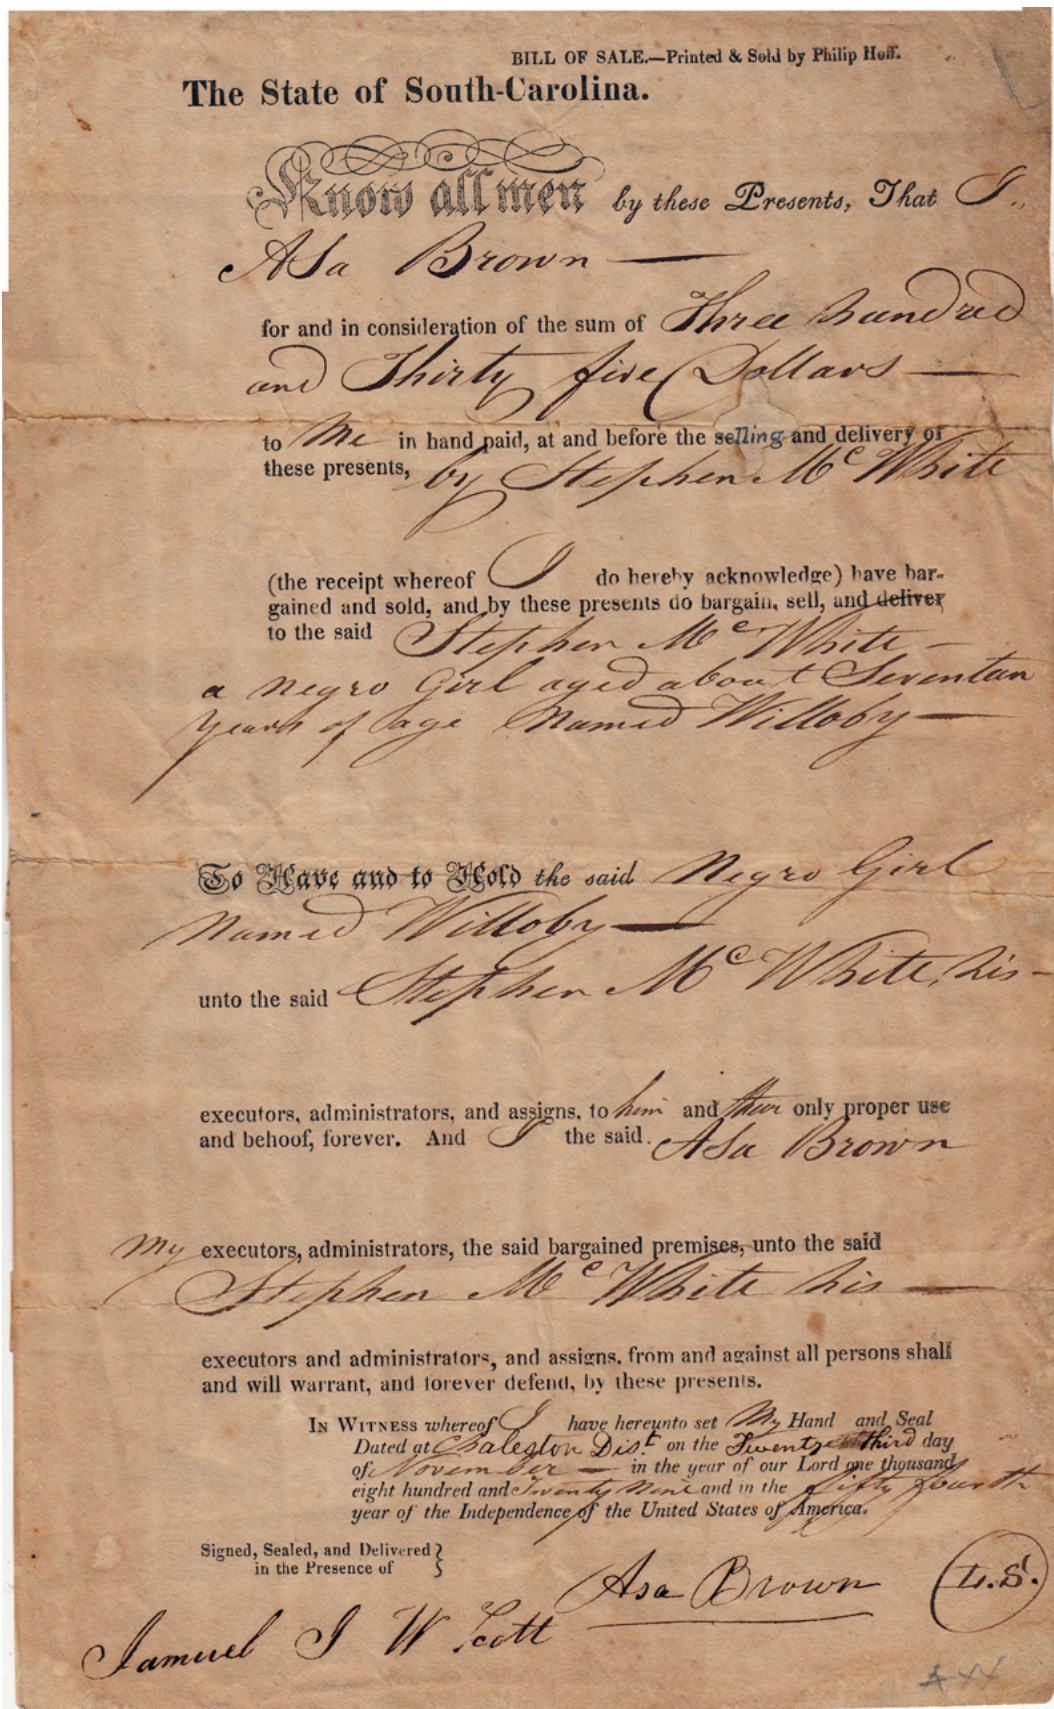 BILL OF SALE.—Printed & Sold by Philip Hoff.
The State of South-Carolina.
Know all men by these Presents, That I,
ASa Brown —
for and in consideration of the sum of Three hundred
and Thirty five Dollars —
to Me in hand paid, at and before the selling and delivery of
these presents, by Stephen Mc White
(the receipt whereof I do hereby acknowledge) have bar-
gained and sold, and by these presents do bargain, sell, and deliver
to the said Stephen Mc White —
a negro Girl aged about Seventan
years of age Named Willoby —
To Have and to Hold the said Negro Girl
Named Willoby —
unto the said Stephen Mc White, his —
executors, administrators, and assigns, to him and their only proper use
and behoof, forever. And I the said ASa Brown
My executors, administrators, the said bargained premises, unto the said
Stephen Mc White his —
executors and administrators, and assigns, from and against all persons shall
and will warrant, and forever defend, by these presents.
IN WITNESS whereof I have hereunto set My Hand and Seal
Dated at Chaleston Dist. on the Twenty third day
of November — in the year of our Lord one thousand
eight hundred and Twenty Nine and in the fifty fourth
year of the Independence of the United States of America.
Signed, Sealed, and Delivered
in the Presence of
Asa Brown L.S.
Samuel J W Scott